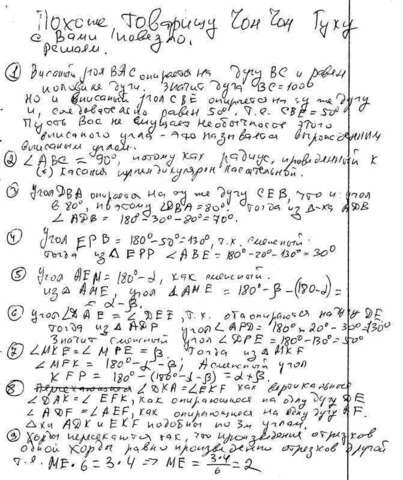 Похоже Товарищу Чон Чон Гуку
с Вами повезло.
Решаем.
① Вписанный угол BAC опирается на дугу BC и равен
половине дуги. Значит дуга BC=100°
Но и вписанный угол CBE опирается на эту же дугу
и, следовательно равен 50°, т.е. CBE=50°
Пусть Вас не смущает необычность этого
вписанного угла - это называется
вписанным углом.
② ∠ABC = 90°, потому как радиус, проведённый к
касания перпендикулярен касательной.
③ Угол DBA опирается на ту же дугу CEB, что и угол
в 80°, поэтому ∠DBA=80°. Тогда из Δ-ка ADB
∠ADB = 180°-30°-80°=70°.
④ Угол EPB = 180°-50°=130°, т.к. смежный.
Тогда из Δ EPP ∠ABE = 180°-20°-130°=30°
⑤ Угол AEM = 180°-α, как смежный.
из Δ AME, угол ∠AME = 180°-β-(180-α)=
= α-β.
⑥ Угол ∠DAE = ∠DEE, т.к. оба опираются на дугу DE
Тогда из Δ ADP угол ∠APD = 180°-20°-30°=130°
Значит смежный угол ∠DPE = 180°-130°=50°
⑦ ∠MKE=∠MPE=β. Тогда из ΔMKF
∠MFK = 180°-α-β. А смежный угол
KFP = 180°-(180°-α-β)=α+β.
⑧ ∠DKA=∠EKF как вертикальные
∠DAK=∠EFK, как опирающиеся на одну дугу DE
∠ADF=∠AEF, как опирающиеся на одну дугу AF.
Δ-ки ADK и EKF подобны по 3м углам.
⑨ Хорды пересекаются так, что произведения отрезков
одной хорды равно произведению отрезков другой
т.е. ME·6=3·4 ⇒ ME = 3·4/6 = 2